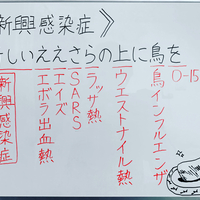 新興感染症》
しいええさらの上に鳥を
O-15
鳥インフルエンザ
ウエストナイル熱
ラッサ熱
SARS
エイズ
エボラ出血熱
新興感染症